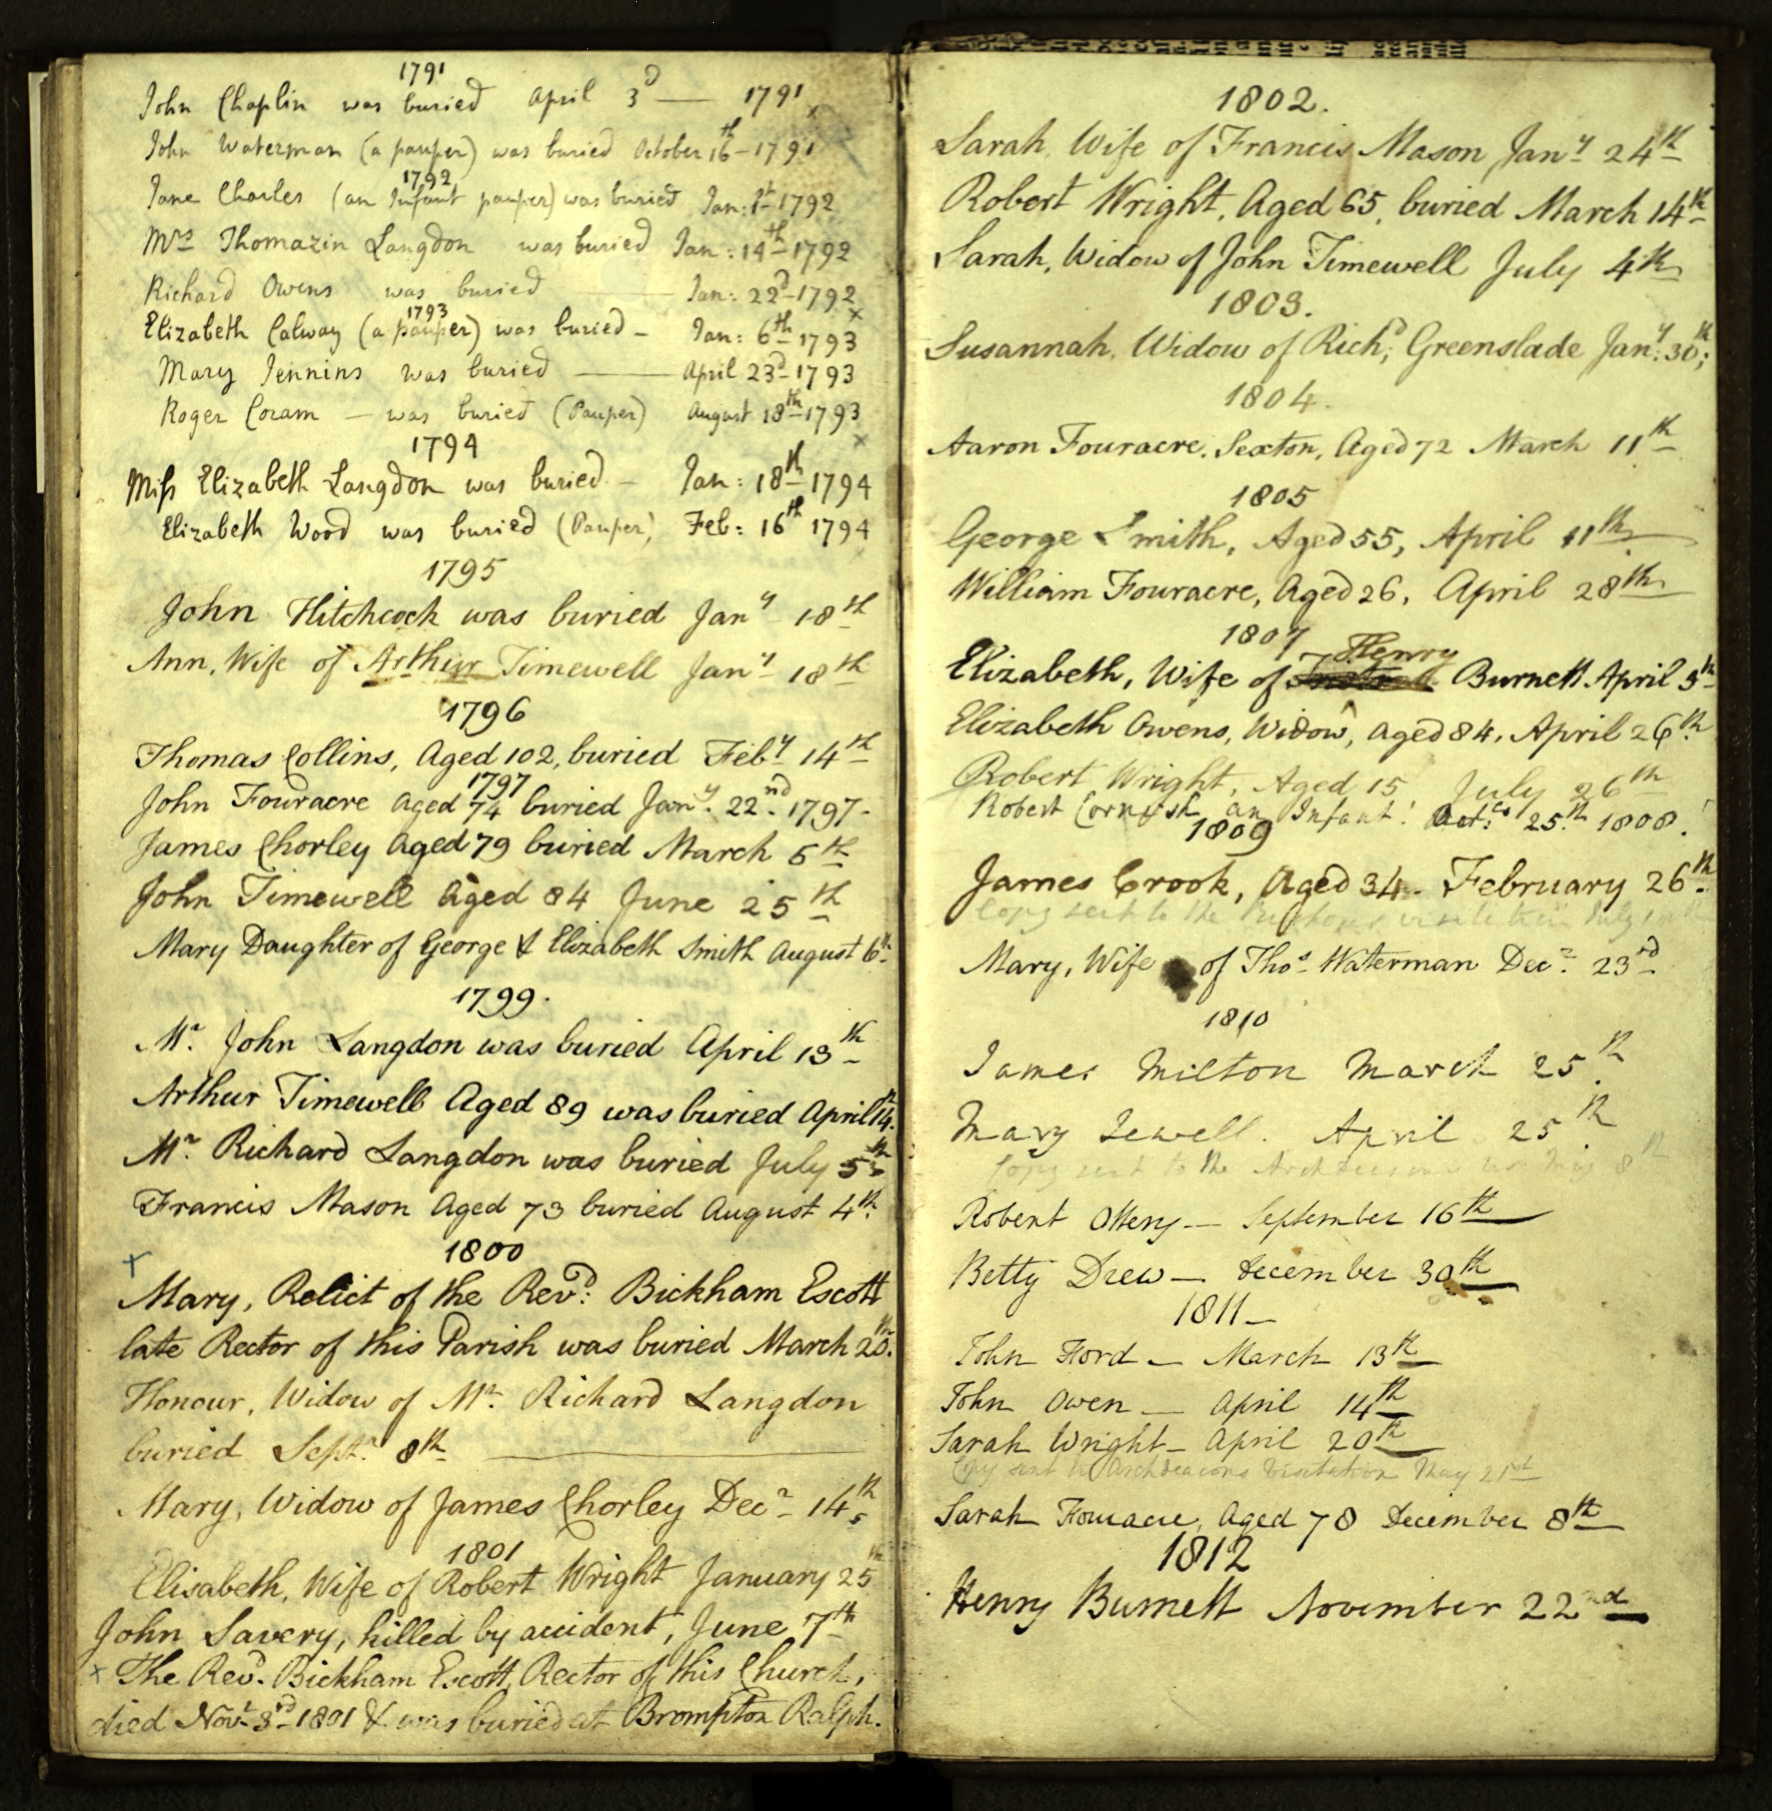 1791
John Chaplin was buried April 3d — 1791
John Waterman (a pauper) was buried October 16th – 1791
1792
Jane Charles (an Infant pauper) was buried Jan: 1st 1792
Mrs Thomazin Langdon was buried Jan: 14th 1792
Richard Owens was buried — Jan: 22d – 1792
1793
Elizabeth Calway (a pauper) was buried – Jan: 6th 1793
Mary Jennins was buried — April 23d – 1793
Roger Coram – was buried (Pauper) August 18th 1793
1794
Miss Elizabeth Langdon was buried – Jan: 18th 1794
Elizabeth Wood was buried (Pauper) Feb: 16th 1794
1795
John Hitchcock was buried Jany 18th
Ann, Wife of Arthur Timewell Jany 18th
1796
Thomas Collins, Aged 102, buried Feby 14th
1797
John Fouracre Aged 74 buried Jany. 22nd. 1797–
James Chorley Aged 79 buried March 5th
John Timewell Aged 84 June 25th
Mary Daughter of George & Elizabeth Smith August 6th
1799.
Mr. John Langdon was buried April 13th
Arthur Timewell Aged 89 was buried April 14th.
Mr. Richard Langdon was buried July 5th
Francis Mason Aged 73 buried August 4th.
1800
Mary, Relict of the Revd: Bickham Escott
late Rector of this Parish was buried March 20th.
Honour, Widow of Mr. Richard Langdon
buried Septr. 8th
Mary, Widow of James Chorley Decr 14th
1801
Elisabeth, Wife of Robert Wright January 25th
John Savery, killed by accident, June 7th
x The Revd. Bickham Escott, Rector of this Church,
died Novr 3rd 1801 & was buried at Brompton Ralph.
1802.
Sarah, Wife of Francis Mason Jany 24th
Robert Wright, Aged 65, buried March 14th
Sarah, Widow of John Timewell July 4th
1803.
Susannah, Widow of Richd; Greenslade Jany: 30th;
1804.
Aaron Fouracre, Sexton, Aged 72 March 11th
1805
George Smith, Aged 55, April 11th
William Fouracre, Aged 26, April 28th
1807
Henry
Elizabeth, Wife of Burnett April 5th
Elizabeth Owens, Widow, Aged 84, April 26th
Robert Wright, Aged 15 July 26th
Robert Cornish an Infant! 25th 1808.
1809
James Crook, Aged 34– February 26th
Copy sent to the
Mary, Wife of Thos Waterman Decr. 23rd
1810
James Milton March 25th
Mary Sewell. April 25th
Copy sent to the 8th
Robert Ottery — September 16th
Betty Drew — December 30th
1811 –
John Ford – March 13th
John Owen — April 14th
Sarah Wright – April 20th
Copy sent to Archdeacons Visitation May 21st
Sarah Fouracre, Aged 78 December 8th
1812
Henry Burnett November 22nd